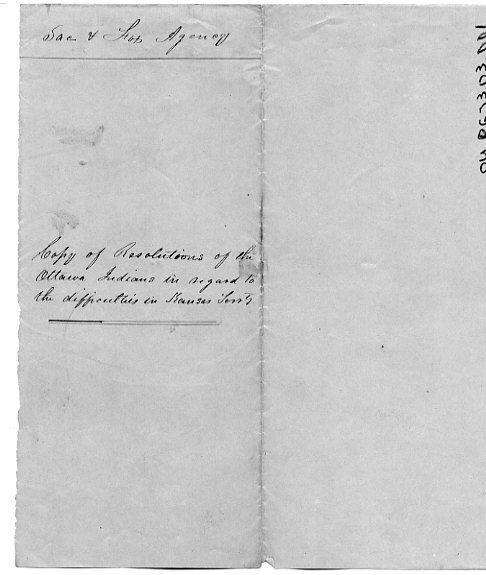 Sac & Fox Agency
Copy of Resolutions of the
Ottawa Indians in regard to
the difficulties in Kansas Terry